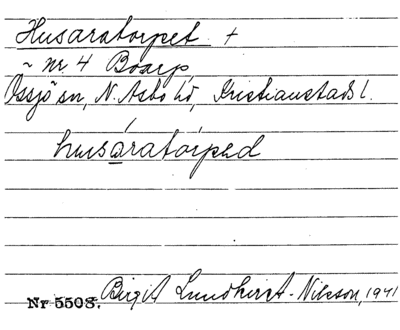 Husaratorpet +
~ nr 4 Boarp,
Össjö sn, N. Åsbo hd, Kristianstads l.
husáratórpəd
Nr 5508. Birgit Lundkvist-Nilsson, 1941